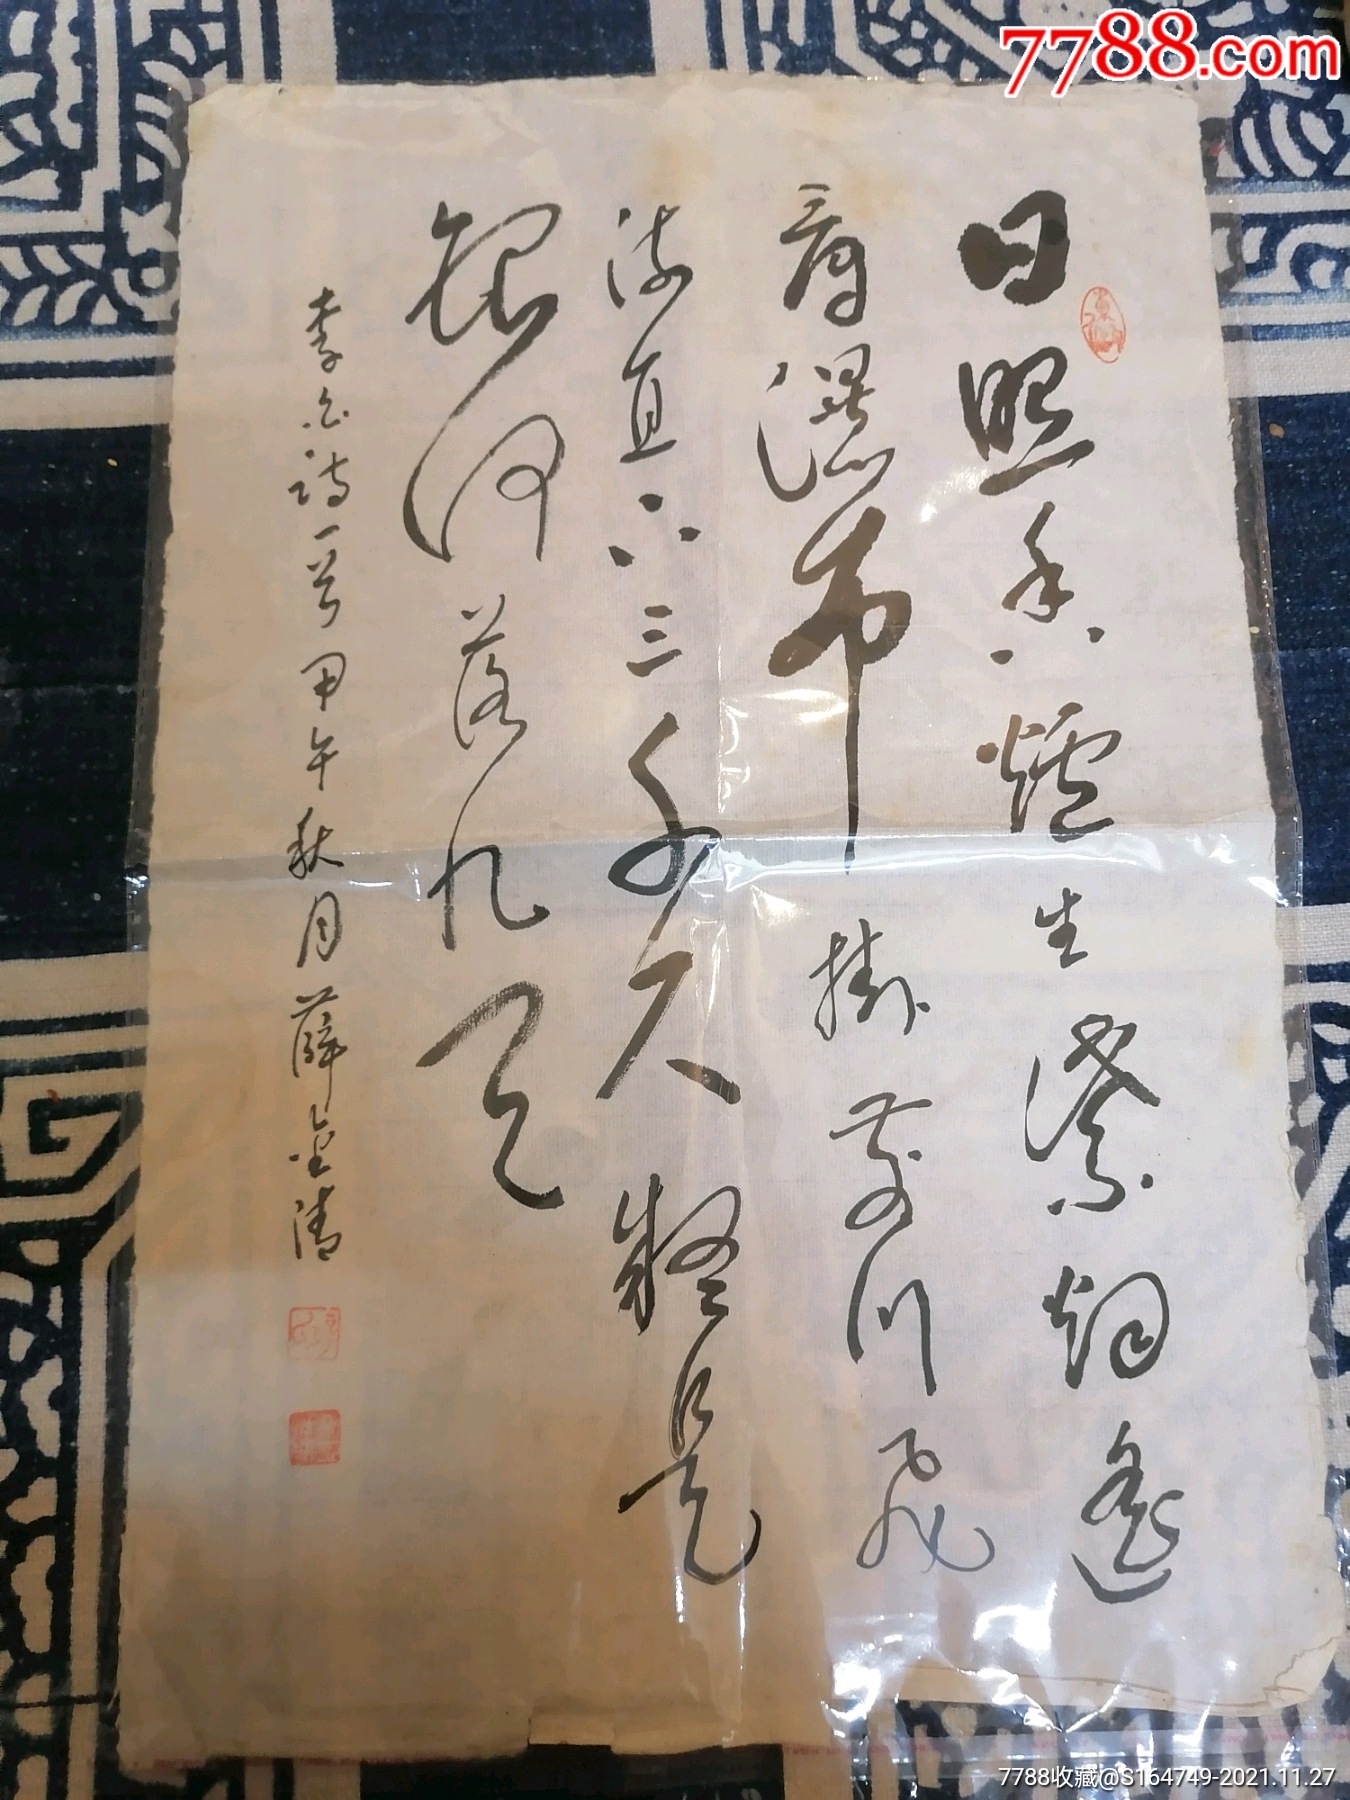 7788.com
日照香爐生紫烟遥
看瀑布掛前川飛
流直下三千尺疑是
銀河落九天
李白詩一首甲午秋月薛金清
7788收藏@S164749-2021.11.27